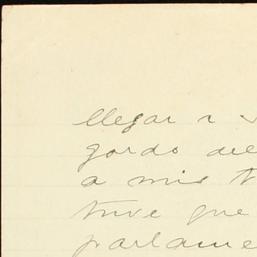 llegar a
gordo del
a mis
tuve que
parlame